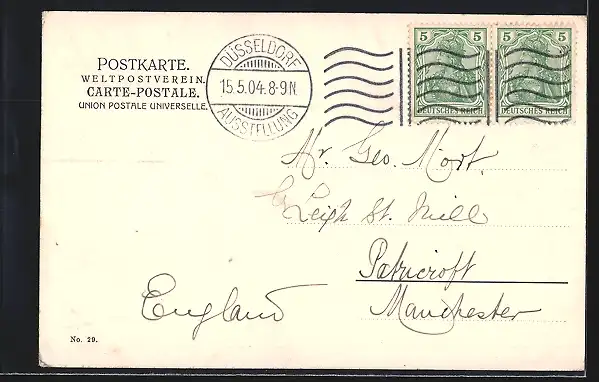 POSTKARTE.
WELTPOSTVEREIN.
CARTE-POSTALE.
UNION POSTALE UNIVERSELLE.
DÜSSELDORF
15.5.04.8-9N.
AUSSTELLUNG
5 5 5 5
DEUTSCHES REICH DEUTSCHES REICH
Mr. Geo. Mort.
Leigh St. Mill
Patricroft
Manchester
England
No. 29.